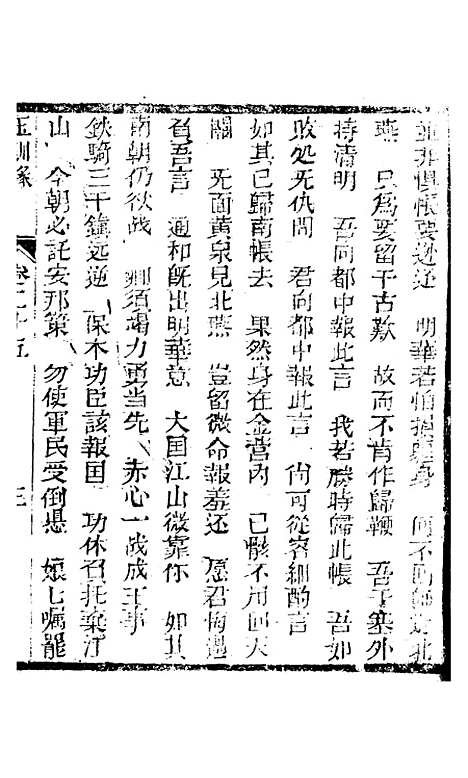 並非惧帳要逃还 明華若怕捐軀身 何不助師定北
燕 只為要留千古歎 故而不肯作歸鞭 吾于塞外
持清明 吾向都中報此言 我若勝時歸此帳 吾如
敗処死仇閙 君向都中報此言 尚可從容細酌言
如其已歸南帳去 果然身在金营内 已骸不用回天
關 死面黄泉見北燕 豈留微命報羞还 愿君悔過
負吾言 通和旣出明華意 大国江山微靠你 如其
南朝仍欲战 卿須竭力勇当先 赤心一战成王事
鉄騎三千鎮远逆 保木功臣該報国 功休召托棄江
山 今朝必託安那策 勿使軍民受倒懸 娘七嘱罷
玉釧緣 卷二十五 三